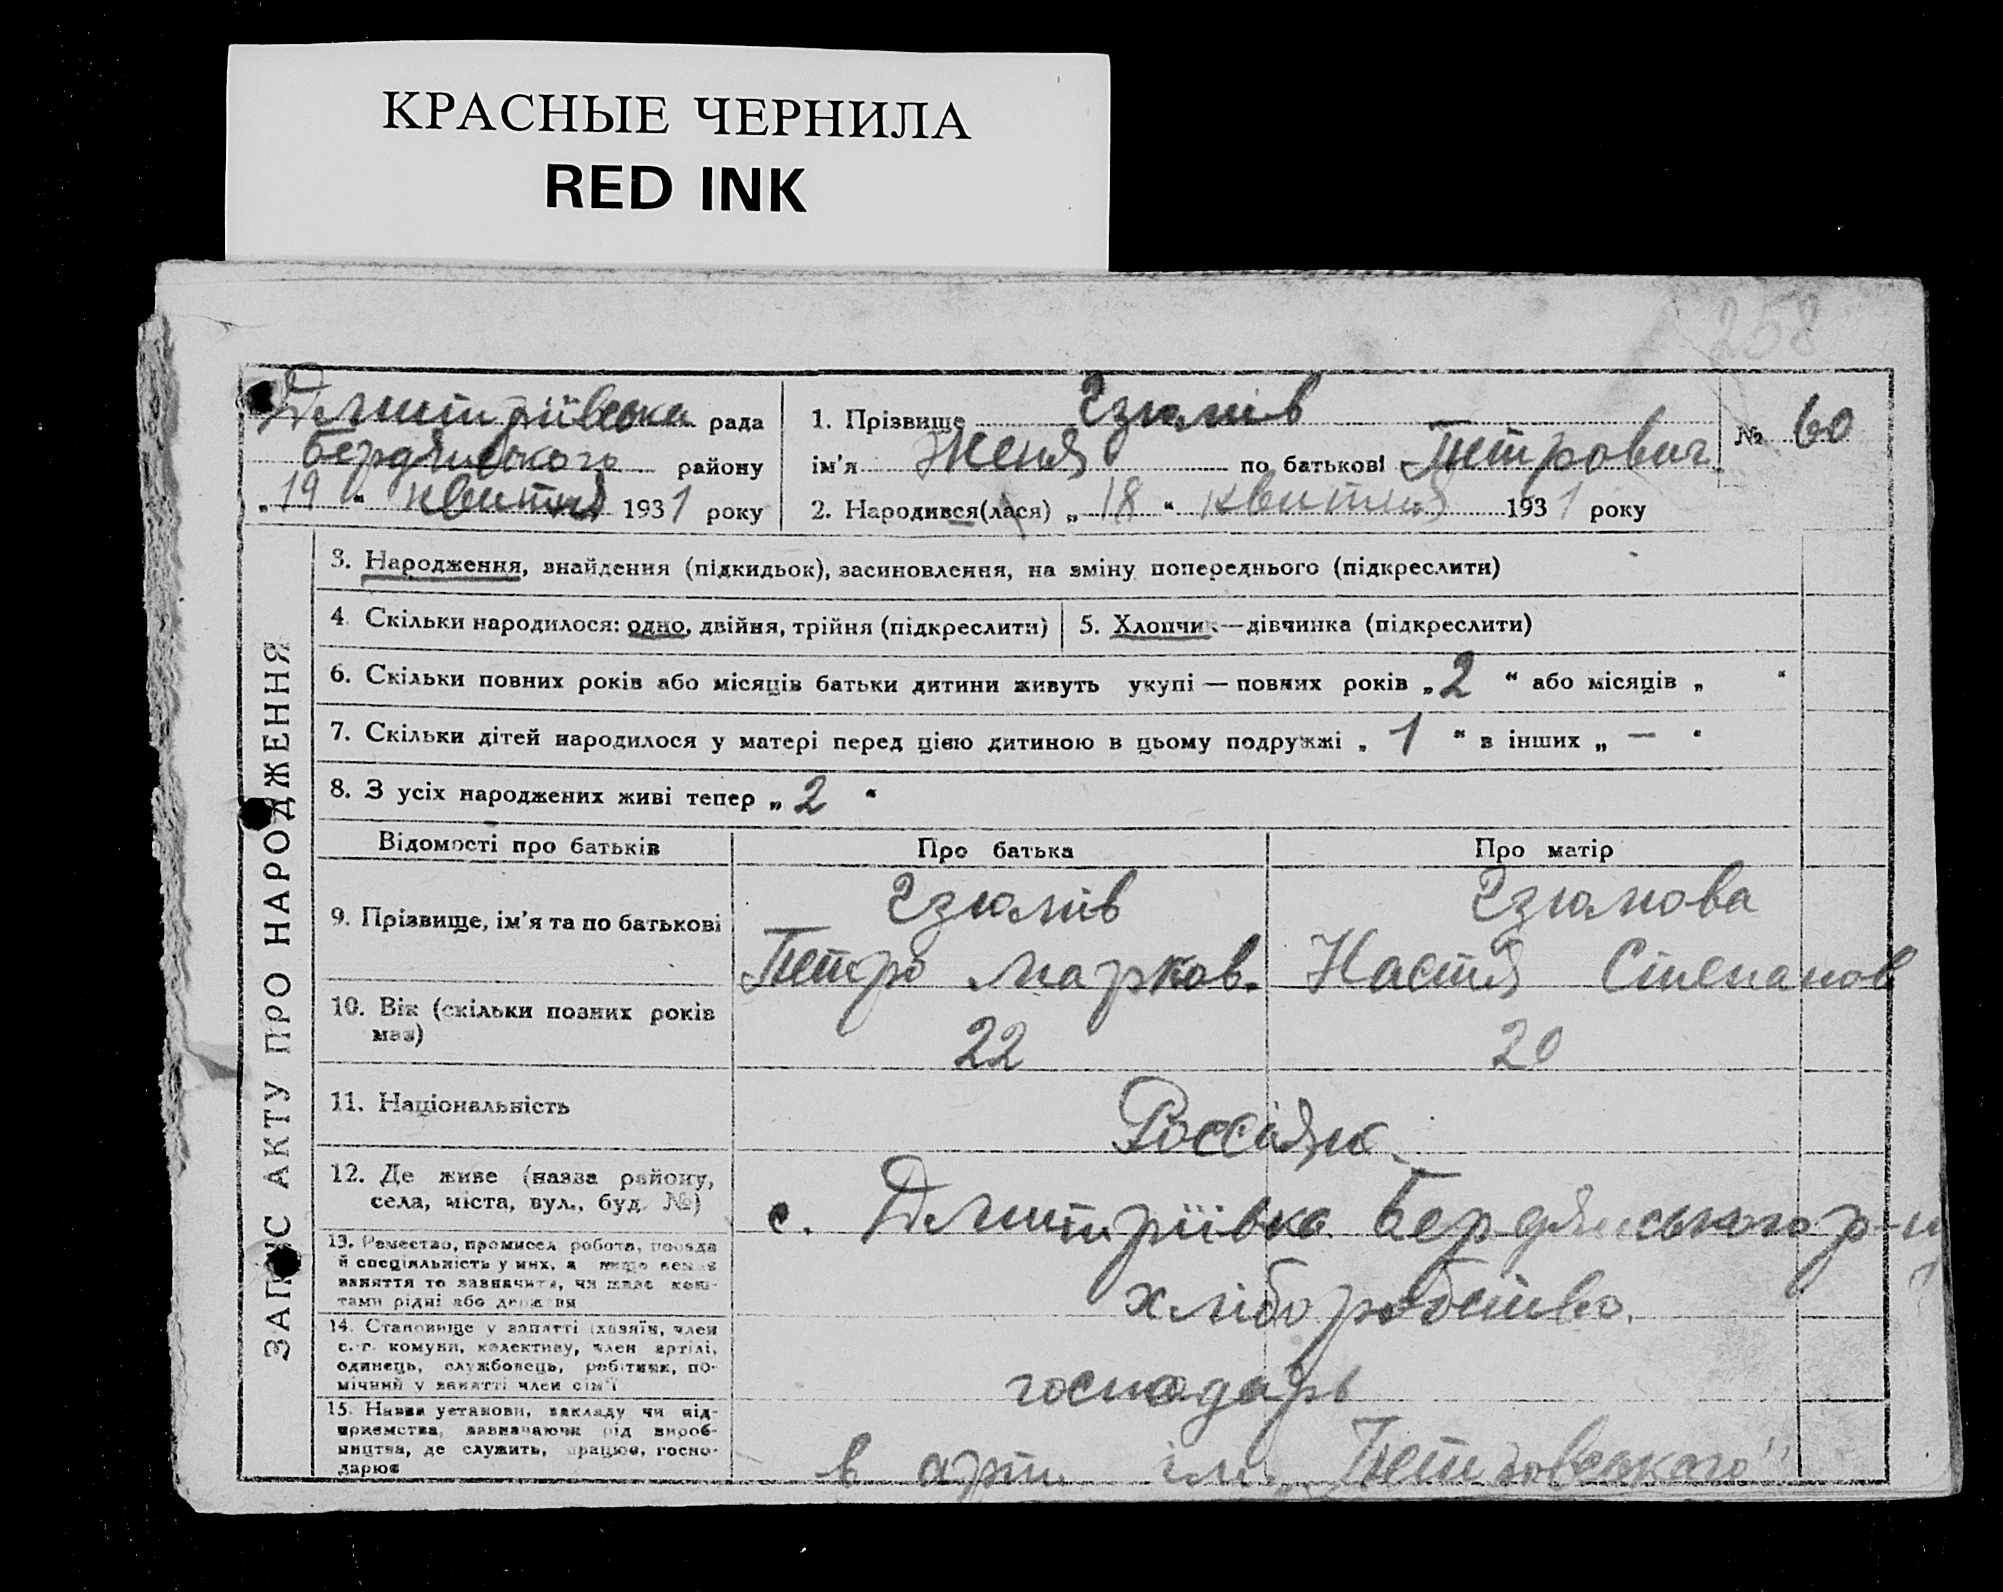 КРАСНЫЕ ЧЕРНИЛА
RED INK
258
Дмитріївська рада
Бердянського району
„19“ квітня 1931 року
1. Прізвище Ізюмів
ім'я Женя по батькові Петрович
№ 60
2. Народився(лася) „18“ квітня 1931 року
ЗАПИС АКТУ ПРО НАРОДЖЕННЯ
3. Народження, знайдення (підкидьок), засиновлення, на зміну попереднього (підкреслити)
4. Скільки народилося: одно, двійня, трійня (підкреслити)
5. Хлопчик—дівчинка (підкреслити)
6. Скільки повних років або місяців батьки дитини живуть укупі — повних років „2“ або місяців „ “
7. Скільки дітей народилося у матері перед цією дитиною в цьому подружжі „1“ в інших „—“
8. З усіх народжених живі тепер „2“
Відомості про батьків Про батька Про матір
9. Прізвище, ім'я та по батькові
Ізюмів
Петро Марков.
Ізюмова
Настя Степанов
10. Вік (скільки повних років
має)
22 20
11. Національність
Россіян.
12. Де живе (назва району,
села, міста, вул., буд. №)
с. Дмитріївка Бердянського р-ну
13. Ремество, промисел робота, посада
й спеціяльність у них, а якщо немає
заняття то зазначити, чи живе кош-
тами рідні або держави
хліборобство.
14. Становище у занятті (хазяїн, член
с.-г. комуни, колективу, член артілі,
одинець, службовець, робітник, по-
мічний у занятті член сім'ї
господарь
15. Назва установи, закладу чи під-
приємства, зазначаючи рід вироб-
ництва, де служить, працює, госпо-
дарює
в арт. ім. „Петровського"